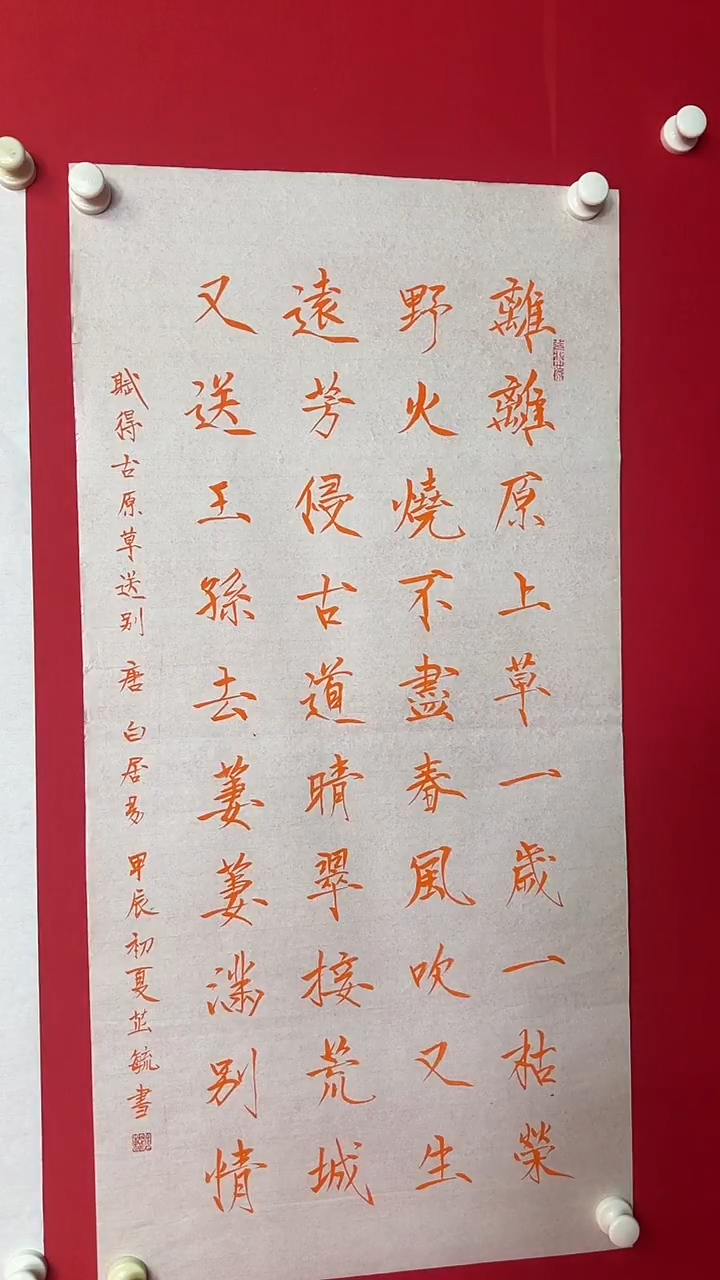 離離原上草一歲一枯榮
野火燒不盡春風吹又生
遠芳侵古道晴翠接荒城
又送王孫去萋萋滿別情
賦得古原草送别 唐 白居易 甲辰初夏芷毓書